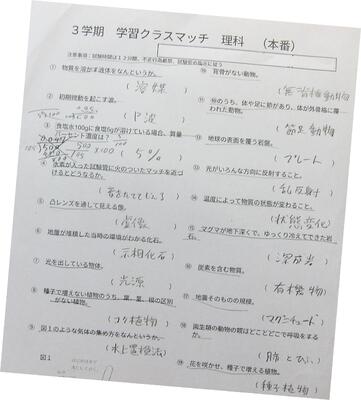 3学期 学習クラスマッチ 理科 （本番）
注意事項：試験時間は12分間、不正行為厳禁、試験官の指示に従う
① 物質を溶かす液体をなんというか。
（溶媒）
② 初期微動を起こす波。
（P波）
③ 食塩水100gに食塩5gが溶けている場合、質量
パーセント濃度は？
（5%）
④ 水素が入った試験管に火のついたマッチを近づ
けるとどうなるか。
⑤ 凸レンズを通して見える像。
（虚像）
⑥ 地層が堆積した当時の環境がわかる化石。
（示相化石）
⑦ 光を出している物体。
（光源）
⑧ 種子で増えない植物のうち、葉、茎、根の区別
がない植物。
（コケ植物）
⑨ 図1のような気体の集め方をなんというか。
（水上置換法）
図1
⑩ 背骨がない動物。
（無脊椎動物）
⑪ ⑩のうち、体や足に節があり、体が外骨格に覆
われた動物。
（節足動物）
⑫ 地球の表面を覆う岩盤。
（プレート）
⑬ 光がいろんな方向に反射すること。
（乱反射）
⑭ 温度によって物質の状態が変わること。
（状態変化）
⑮ マグマが地下深くで、ゆっくり冷えてできた岩
石。
（深成岩）
⑯ 炭素を含む物質。
（有機物）
⑰ 地震そのものの規模。
（マグニチュード）
⑱ 両生類の動物の親はどことどこで呼吸をする
か。
（肺とひふ）
⑲ 花を咲かせ、種子で増える植物。
（種子植物）